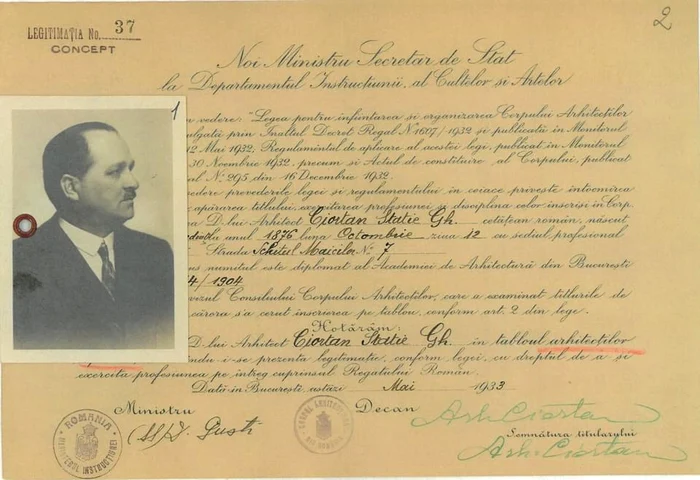 2
LEGITIMAȚIA No. 37
CONCEPT
Noi Ministru Secretar de Stat
la Departamentul Instrucțiunii, al Cultelor și Artelor
1
n vedere: "Legea pentru înființarea și organizarea Corpului Arhitecților
ulgată prin Înaltul Decret Regal No 1697/1932 și publicată în Monitorul
12 Mai 1932, Regulamentul de aplicare al acestei legi, publicat în Monitorul
30 Noembrie 1932, precum și Actul de constituire al Corpului, publicat
al No. 295, din 16 Decembrie 1932.
vedere prevederile legei și regulamentului, în ceiace privește întocmirea
apărarea titlului, exercitarea profesiunei și disciplina celor înscriși în Corp.
D-lui Arhitect Ciortan Statie Gh. cetățean român, născut
anul 1876 luna Octombrie ziua 12 cu sediul profesional
Strada Schitul Maicilor No. 7
us numitul este diplomat al Academiei de Arhitectură din București
4/1904
vizul Consiliului Corpului Arhitecților, care a examinat titlurile de
cărora s'a cerut înscrierea pe tablou, conform art. 2 din lege.
Hotărâm:
D-lui Arhitect Ciortan Statie Gh. în tabloul arhitecților
ndu i-se prezenta legitimație, conform legei, cu dreptul de a-și
exercita profesiunea pe întreg cuprinsul Regatului Român.
Dată în București, astăzi Mai 1933
Ministru
(ss) D. Gusti
Decan
Arh. Ciortan
Semnătura titularului
Arh. Ciortan
ROMANIA
MINISTERUL INSTRUCȚIUNEI